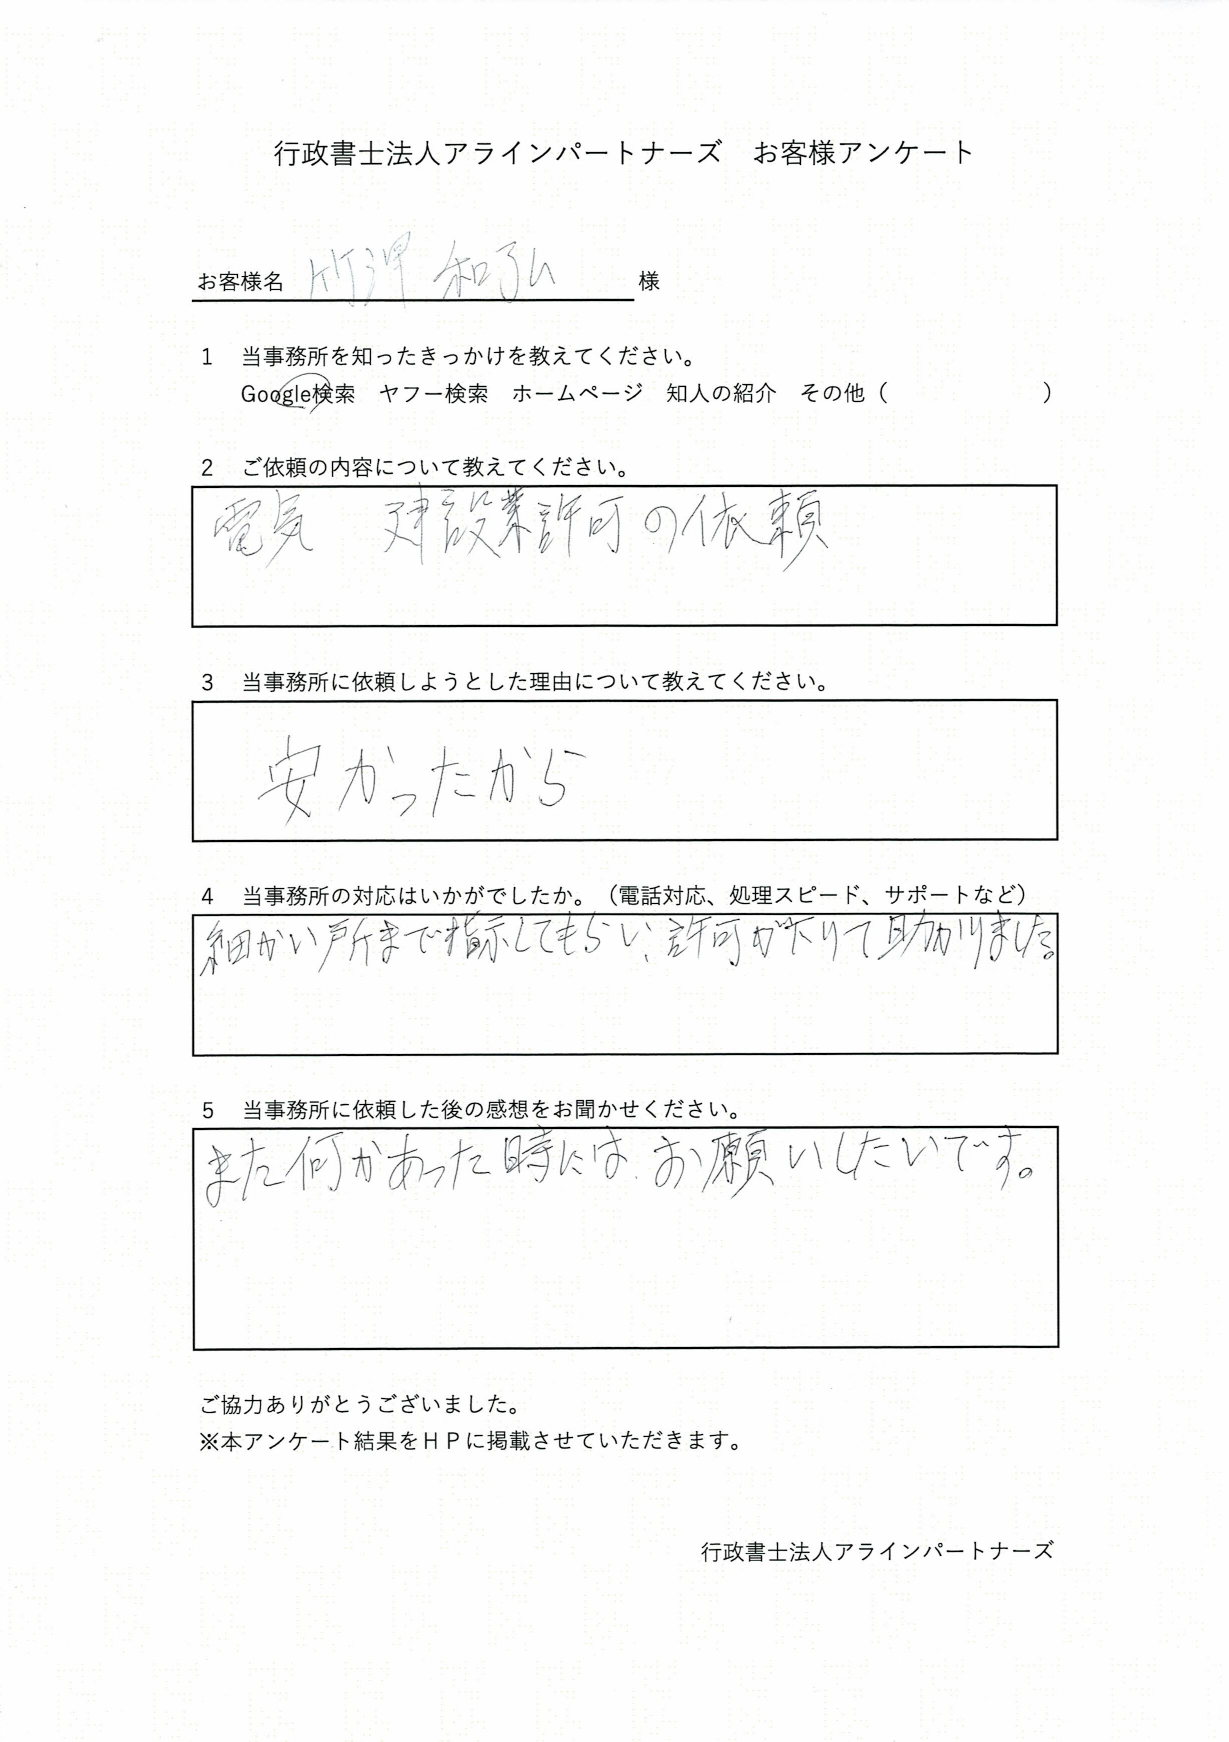 行政書士法人アラインパートナーズ　お客様アンケート
お客様名　竹澤 和弘　様
1　当事務所を知ったきっかけを教えてください。
Google検索　ヤフー検索　ホームページ　知人の紹介　その他（　　　　　　　）
2　ご依頼の内容について教えてください。
電気　建設業許可の依頼
3　当事務所に依頼しようとした理由について教えてください。
安かったから
4　当事務所の対応はいかがでしたか。（電話対応、処理スピード、サポートなど）
細かい所まで指示してもらい、許可が下りて助かりました。
5　当事務所に依頼した後の感想をお聞かせください。
また何かあった時には、お願いしたいです。
ご協力ありがとうございました。
※本アンケート結果をＨＰに掲載させていただきます。
行政書士法人アラインパートナーズ